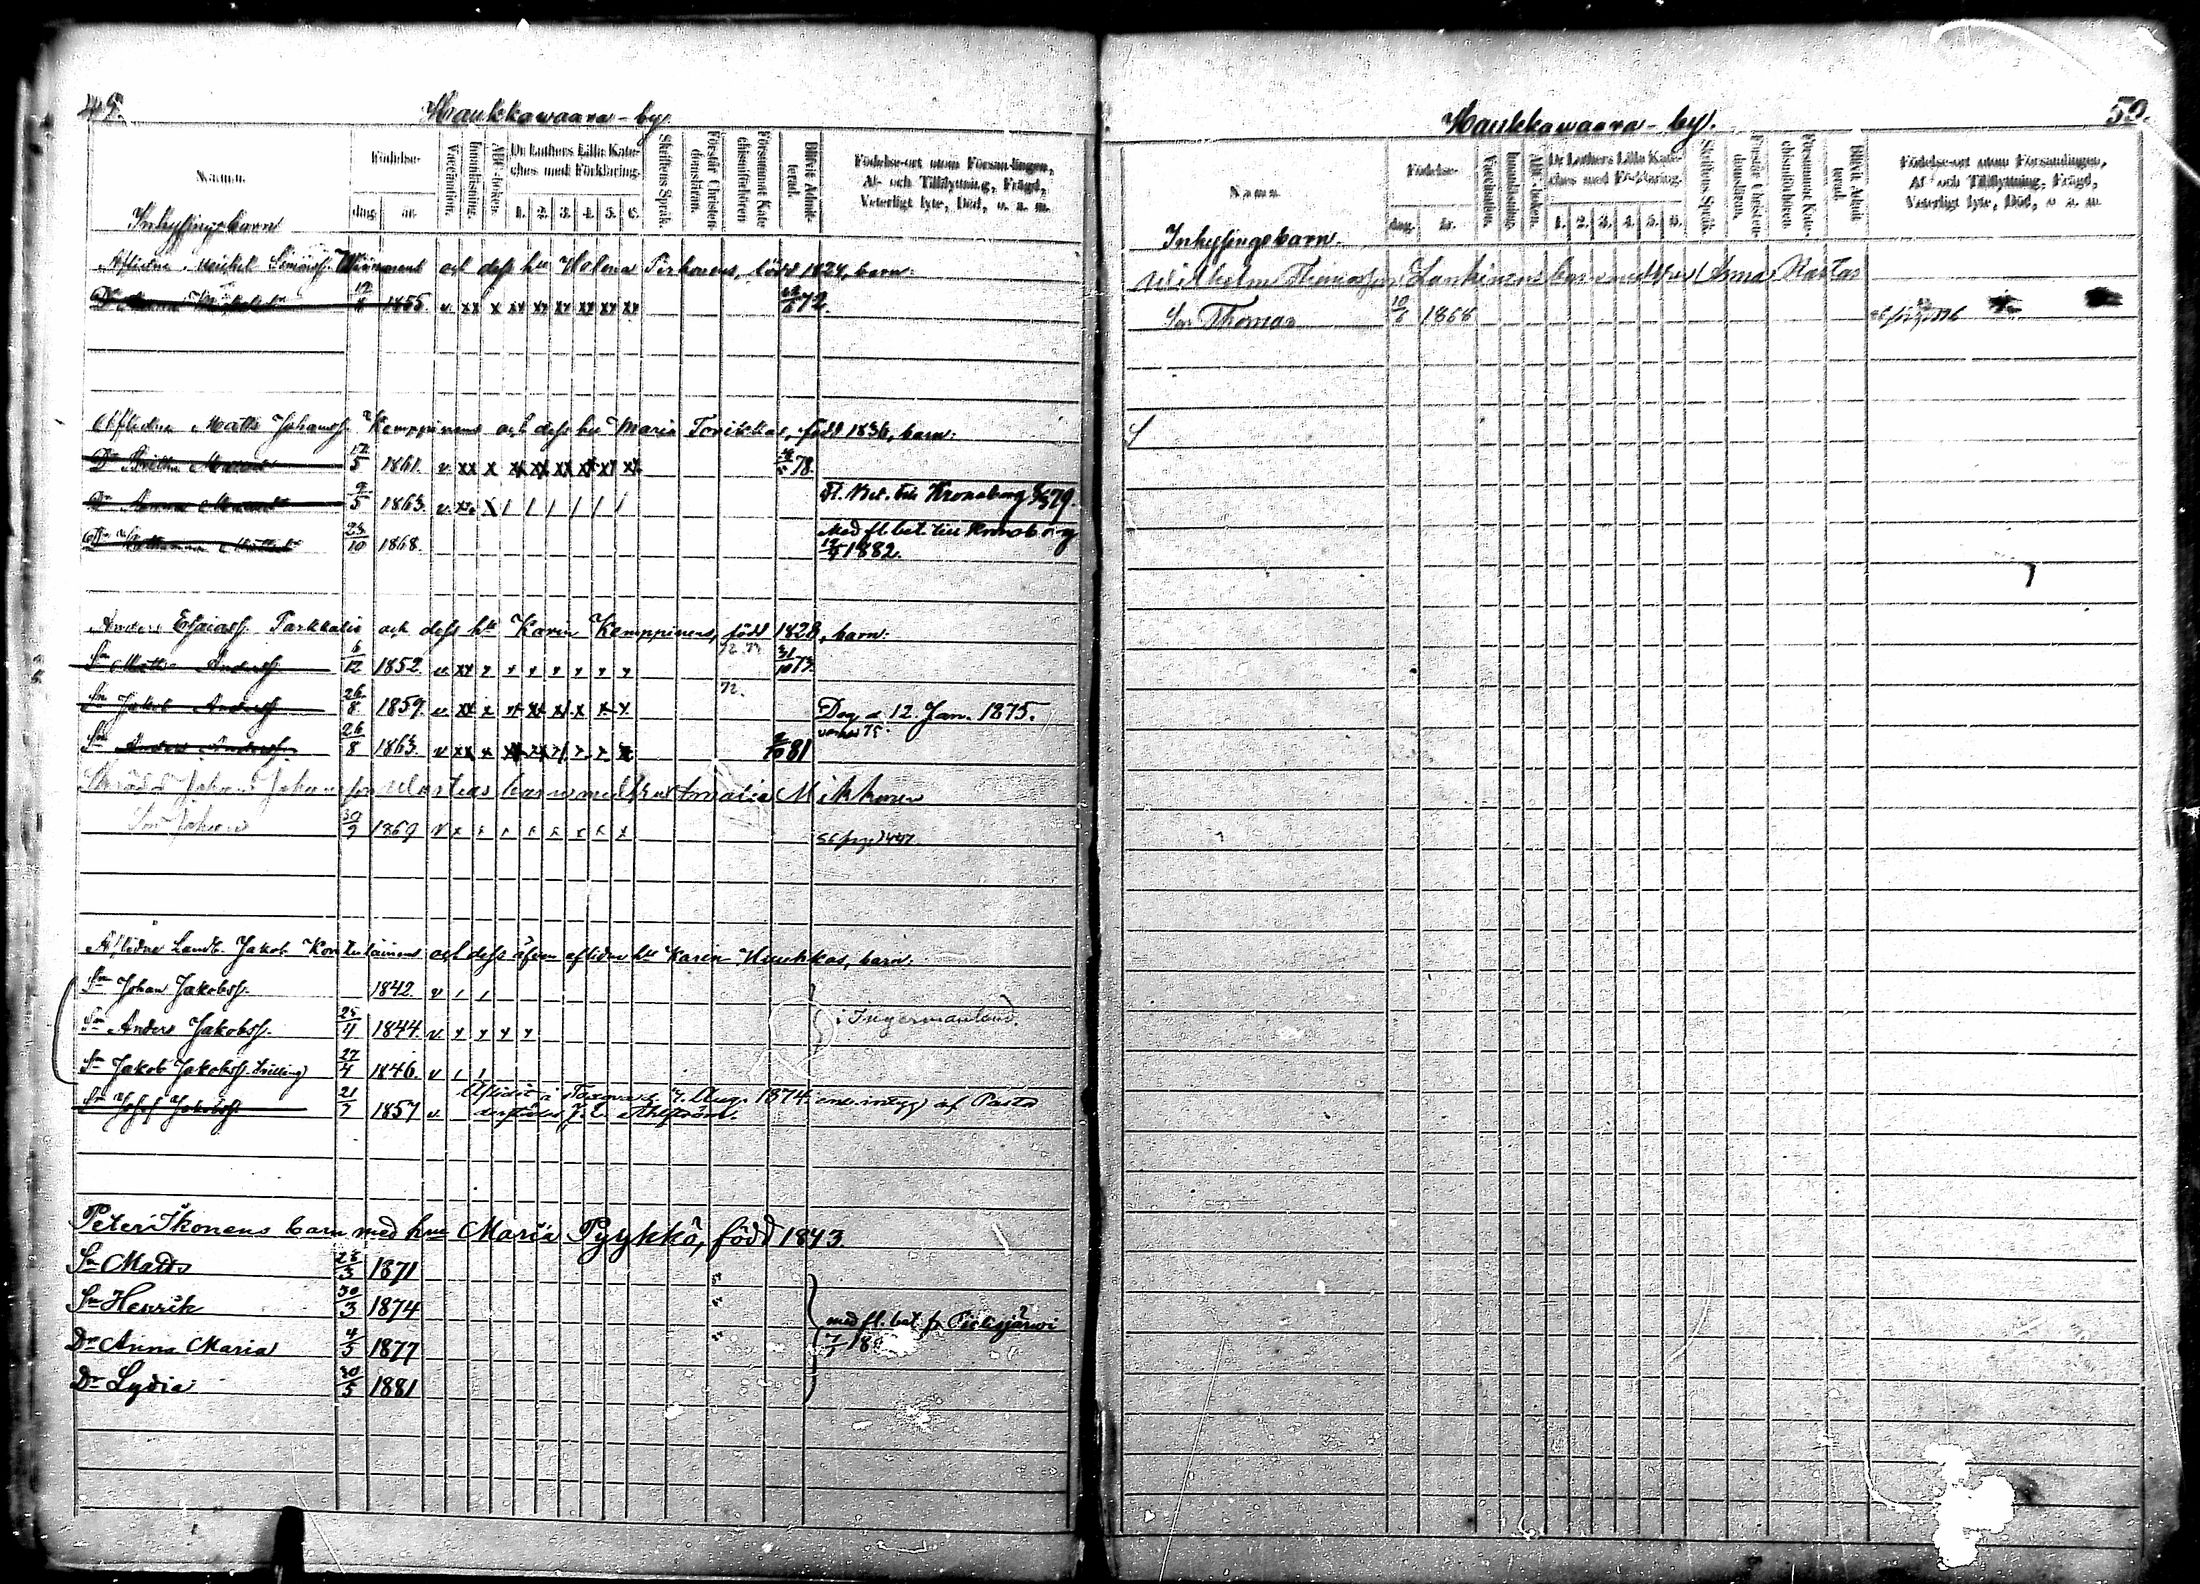 49.
Haukkawaara - by.
Namn.
Födelse-
dag.
år.
Vaccination.
Innanläsning.
ABC-boken.
Dr Luthers Lilla Kate-
ches med Förklaring.
1. 2. 3. 4. 5. 6.
Skriftens Språk.
Förstår Christen-
domslären.
Försummat Kate-
chismiförhören
Blifvit Admit-
terad.
Födelse-ort utom Församlingen,
Af- och Tillflyttning, Frägd,
Veterligt lyte, Död, o. s. m.
Inhysingsbarn
Aflidne Michel Simonss. och dess hu Helena Pirhonens, född 1824, barn:
1855. v. xx x xx xx xx xx xx xx 72.
Aflidne Matts Johanss. Kemppinens och dess hu Maria Torikkas, född 1836, barn:
17/5 1861. v. xx x xx xx xx xx xx xx 78.
Dr Anna 9/5 1863. v. x / / / / / / fl. Bet. till Kronoborg 79.
23/10 1868. Med fl. bet. till Kronoborg
1882.
Anders Esaiass. och dess hu Karin Kemppinens, född 1828, barn:
72. 73
Sn Matts Anderss. 6/12 1852. v. xx x x x x x x x 31/10 73.
72.
Sn Jakob Anderss. 26/8 1859. v. xx x x x x x Dog d. 12. Jan. 1875.
Sn Anders Anderss. 26/8 1863. v. xx x 81
Johan Johansson barn med hu Amalia Mikkonen
Son Johan 30/9 1869 v x x x x x x x x
Aflidne Landb. Jakob och dess äfven aflidne hu Karin Kuukkas, barn:
Sn Johan Jakobss. 1842. v / /
Sn Anders Jakobss. 25/11 1844. v. x x x x i Ingermanland.
Sn Jakob Jakobss. 27/4 1846. v / /
Sn Josef Jakobss. 21/7 1857 v. Afliden i 7. Aug. 1874. enl. intyg af Pastor
derstädes J. E. Ahlström.
Peter Ikonens barn med hu Maria Pyykkö, född 1843.
Sn Matts 28/3 1871
Sn Henrik 30/3 1874
med fl. bet fr Pielisjärvi
Dr Anna Maria 4/5 1877 18
Dr Lydia 30/5 1881
50.
Haukkawaara - by.
Namn
Födelse-
dag.
år.
Vaccination.
Innanläsning.
ABC-boken.
Dr Luthers Lilla Kate-
ches med Förklaring.
1. 2. 3. 4. 5. 6.
Skriftens Språk.
Förstår Christen-
domslären.
Försummat Kate-
chismiförhören.
Blifvit Admit-
terad.
Födelse-ort utom Församlingen,
Af- och Tillflyttning, Frägd,
Veterligt lyte, Död, o. s. m.
Inhysingsbarn.
Wilhelm Thomasson Lankinens barn med hu Anna Rastas
Son Thomas 10/6 1868